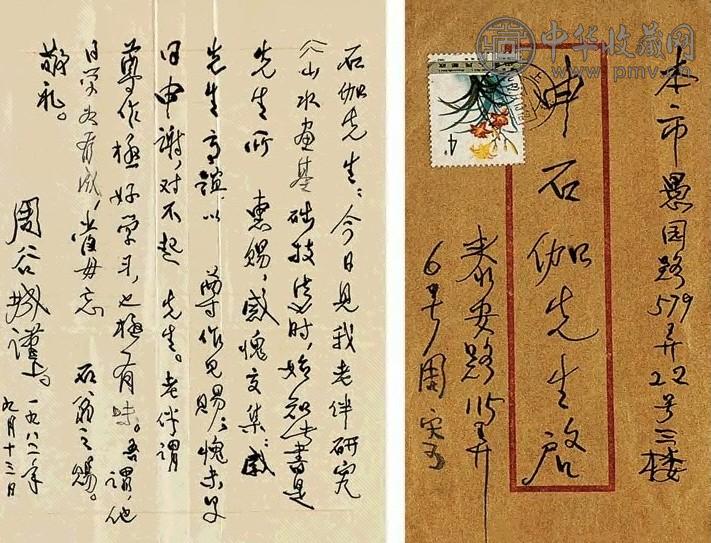 中华收藏网
www.pmv.cn
本市愚园路579弄22号三楼
申石伽先生启
泰安路115弄
6号周寄
石伽先生:今日见我老伴研究
《山水画基础技法》时,始知此书是
先生所 惠赐,感愧交集:感
先生高谊以 尊作见赐;愧未早
日申谢,对不起 先生。老伴谓
尊作极好学习,也极有味。吾谓,他
日学如有成,当毋忘 石翁之赐。
敬礼。
周谷城谨上。
一九八二年
九月十三日